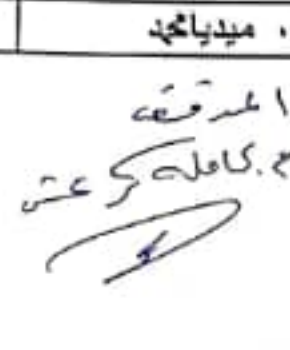 . ميديا محمد
المدقق
م. كامله كرعش